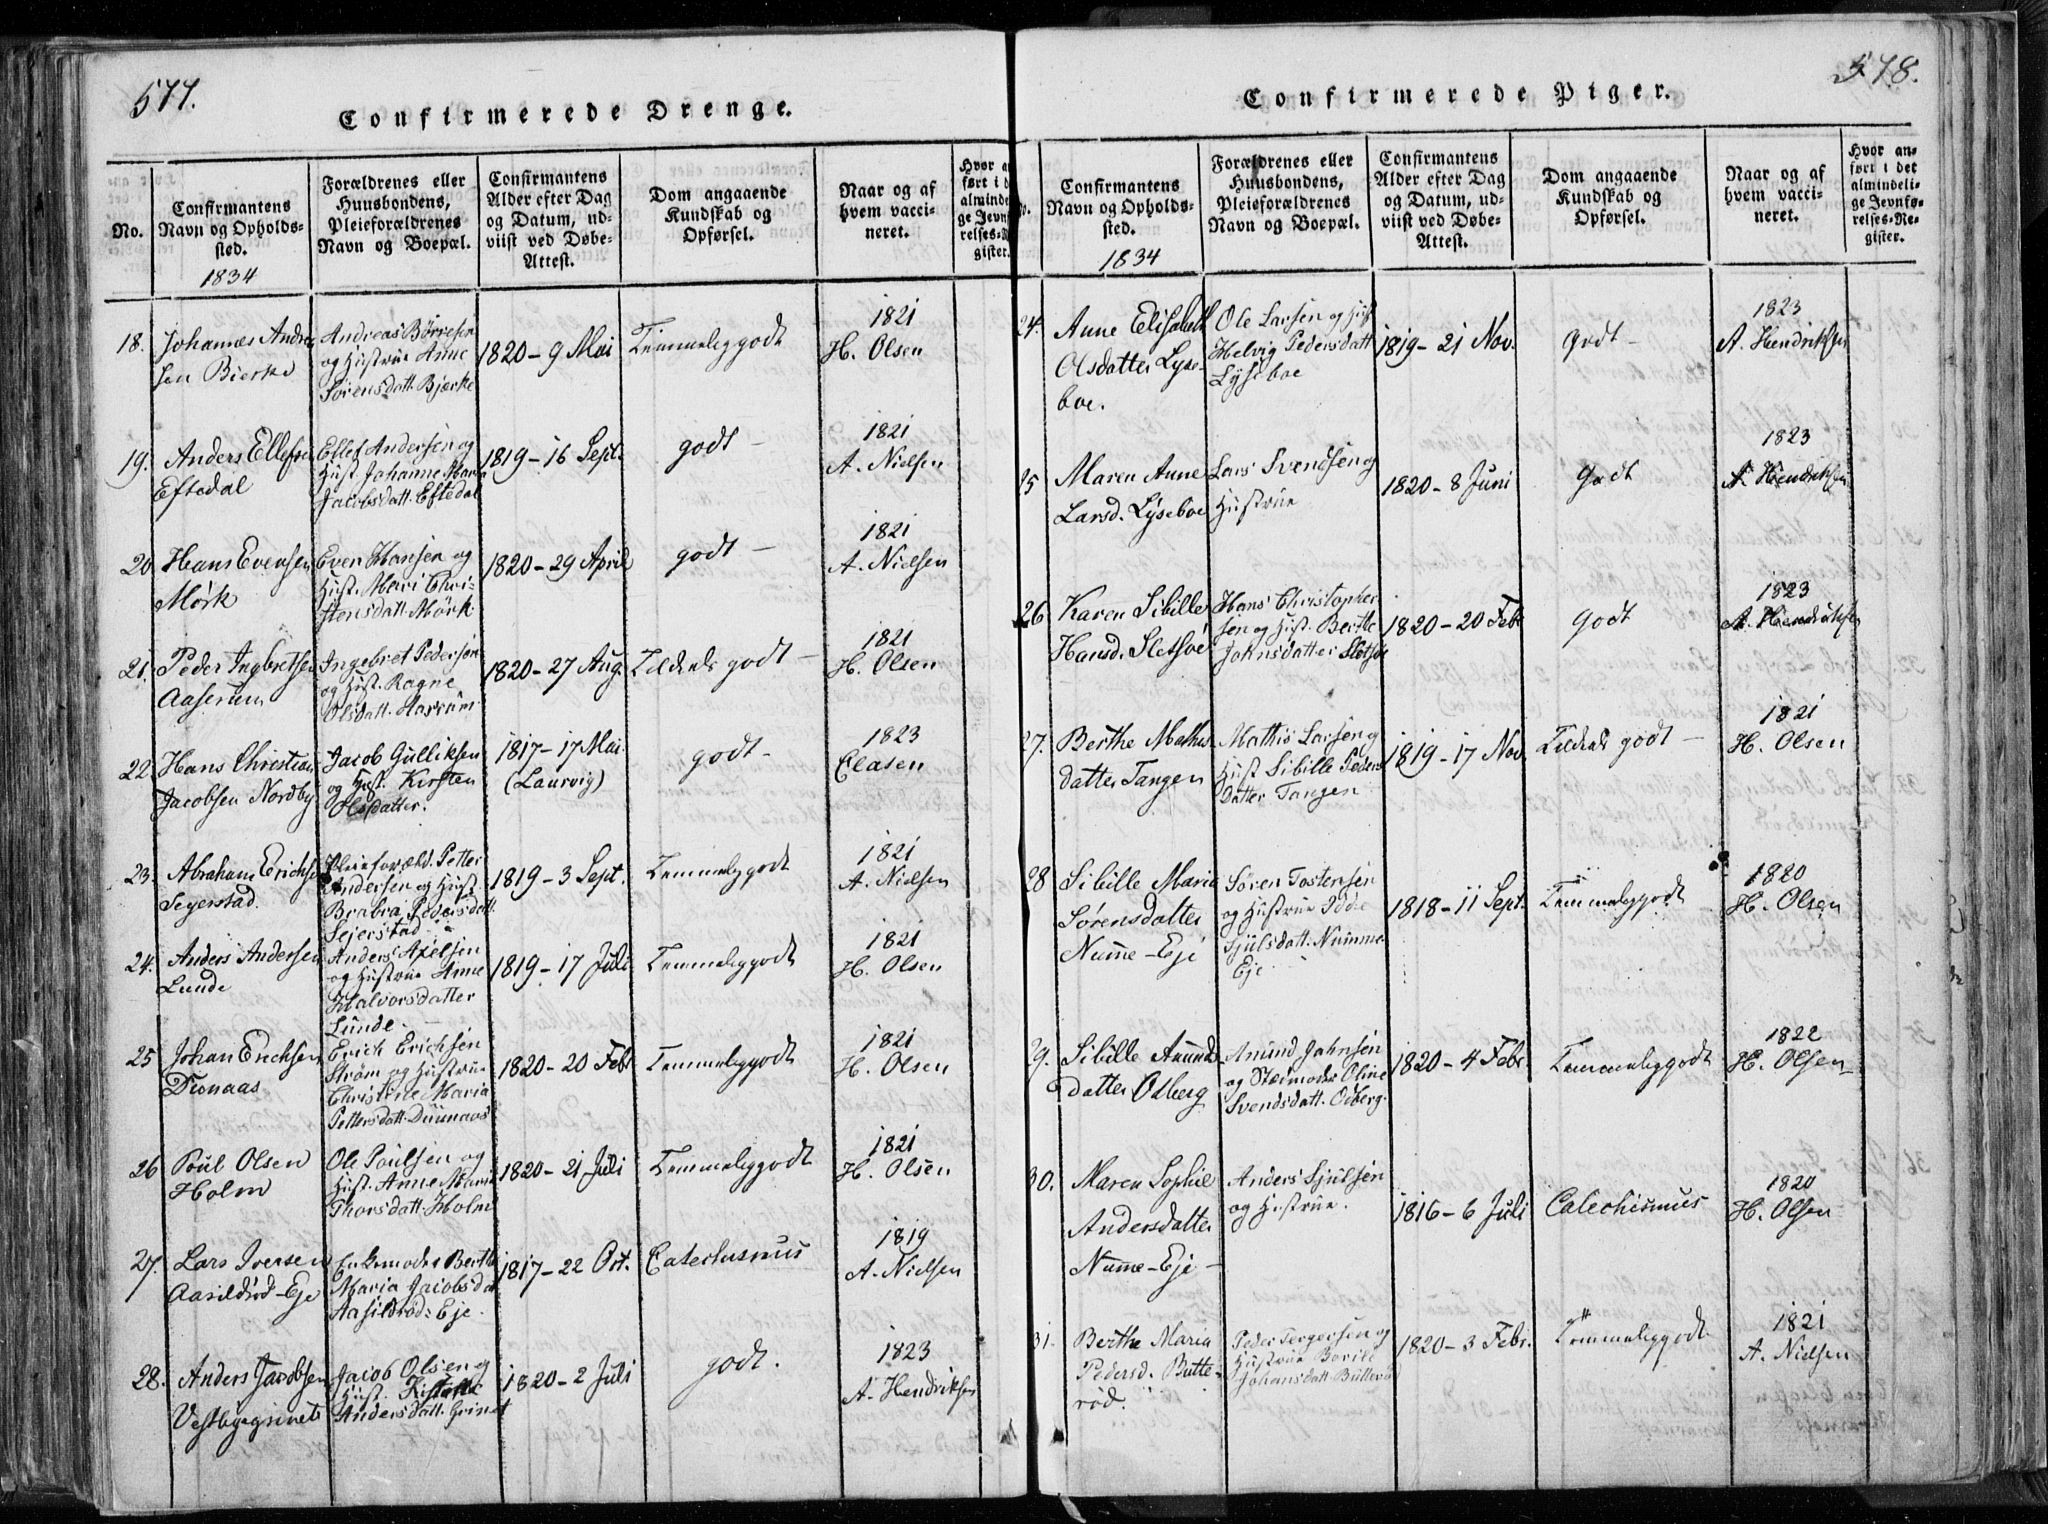 577.
Confirmerede Drenge.
No.
Confirmantens
Navn og Opholds-
sted.
1834
Forældrenes eller
Huusbondens,
Pleieforældrenes
Navn og Boepæl.
Confirmantens
Alder efter Dag
og Datum, ud-
viist ved Døbe-
Attest.
Dom angaaende
Kundskab og
Opførsel.
Naar og af
hvem vacci-
neret.
Hvor an
ført i d
alminde
ge Jevnf
relses-R
gister.
18.
Johannes Andre
sen Bierke
Andreas Börresen
og Hustrue Anne
Sörensdatt. Bjerke
1820 - 9 Mai
Temmeliggodt
1821
H. Olsen
19.
Anders Ellefsen
Eftedal
Ellef Andersen og
Hust. Johanne Maria
Jacobsdatt. Eftedal
1819 - 16 Sept.
godt -
1821
A. Nielsen
20
Hans Evensen
Mörk
Even Hansen og
Hust. Mari Chri-
stensdatt. Mörk
1820 - 29 April
godt -
1821
A. Nielsen
21.
Peder Ingbretsen
Aaserum
Ingebret Pedersen
og Hust. Ragne
Olsdatt. Aaserum
1820 - 27 Aug.
Tildeels godt -
1821
H. Olsen
22
Hans Christian
Jacobsen Nordby
Jacob Gulliksen
og Hust. Kirsten
Olsdatter.
1817 - 17 Mai
(Laurvig)
godt -
1823
Clasen
23.
Abraham Erichsen
Segerstad.
Pleieforæld. Petter
Andersen og Hust
Brabra Pedersdatt.
Sejerstad
1819 - 3 Sept.
Temmeliggodt
1821
A. Nielsen
24.
Anders Andersen
Lunde
Anders Axelsen
og Hustrue Anne
Halvorsdatter
Lunde.
1819 - 17 Juli
Temmeliggodt
1821
H. Olsen
25
Johan Erichsen
Dronaas
Erich Erichsen
Ström og Hustrue
Christine Maria
Pettersdatt.
1820 - 20 Febr
Temmeliggodt
1821
H. Olsen
26
Poul Olsen
Holm
Ole Poulsen og
Hust. Anne Maria
Thorsdatt. Holm
1820 - 21 Juli
Temmeliggodt
1821
H. Olsen
27.
Lars Iversen
Aasildröd-Eje
Enkemoder Berthe
Maria Jacobsdat
Aasildröd-Eje.
1817 - 22 Oct.
Catechismus
1819
A. Nielsen
28.
Anders Jacobsen
Vestbygrinet
Jacob Olsen og
Hust.
Andersdatt. Grinet
1820 - 2 Juli
godt.
1823
A. Hendriksen
578.
Confirmerede Piger.
Confirmantens
Navn og Opholds-
sted.
1834
Forældrenes eller
Huusbondens,
Pleieforældrenes
Navn og Boepæl.
Confirmantens
Alder efter Dag
og Datum, ud-
viist ved Døbe-
Attest.
Dom angaaende
Kundskab og
Opførsel.
Naar og af
hvem vacci-
neret.
Hvor an-
ført i det
almindeli-
ge Jevnfø-
relses-Re-
gister.
24.
Anne Elisabeth
Olsdatter Lyse-
boe.
Ole Larsen og Hust
Helvig Pedersdatt
Lyseboe
1819 - 21 Nov.
Godt -
1823
A. Hendriksen
25
Maren Anne
Larsd. Lyseboe
Lars Svendsen og
Hustrue
1820 - 8 Juni
Godt
1823
A. Hendriksen
26
Karen Sibille
Hansd. Sletsöe
Hans Christopher
sen og Hust. Berthe
Johnsdatter Sletsöe
1820 - 20 Febr
godt
1823
A. Hendriksen
27.
Berthe Mathis
datter Tangen
Mathis Larsen og
Hust Sibille Peders
Datter Tangen
1819 - 17 Nov.
Tildeels godt -
1821
H. Olsen
28
Sibille Maria
Sörensdatter
Numme-Eje
Sören Tostensen
og Hustrue Idde
Sjulsdatt. Numme
Eje
1818 - 11 Sept.
Temmeliggodt
1820
H. Olsen
29.
Sibille Amunds
datter Odberg
Amund Jahnsen
og Stedmoder Oline
Svendsdatt. Odberg.
1820 - 4 Febr
Temmeliggodt
1822
H. Olsen
30.
Maren Sophie
Andersdatter
Numme-Eje -
Anders Sjulsen
og Hustrue.
1816 - 6 Juli
Catechismus
1820
H. Olsen
31.
Berthe Maria
Pedersd. Butte-
röd.
Peder Tergersen og
Hustrue Borild
Johansdatt. Butteröd
1820 - 3 Febr.
Temmeliggodt
1821
A. Nielsen